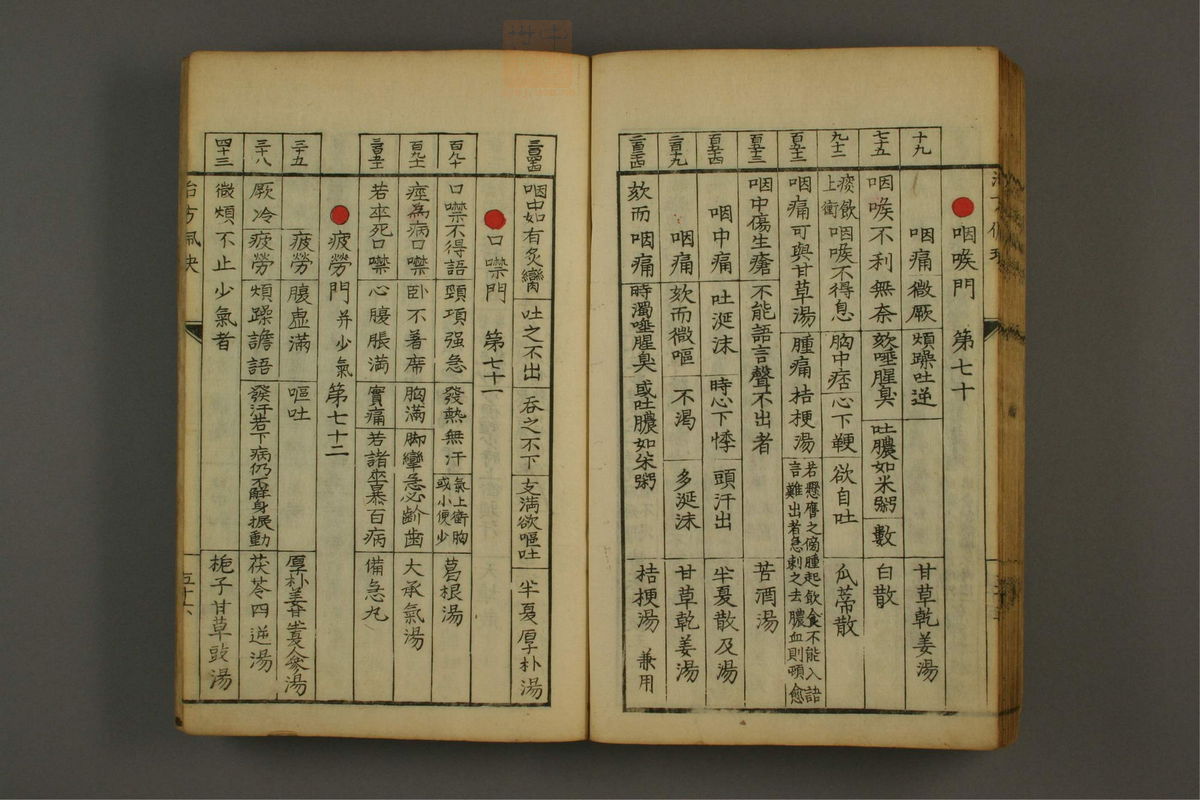 咽喉門 第七十
十九 咽痛微厥 煩躁吐逆 甘草乾姜湯
七十五 咽喉不利無奈 欬唾腥臭 吐膿如米粥 數 白散
九十二 痰飲上衝 咽喉不得息 胸中痞 心下鞕 欲自吐 瓜蔕散
咽痛可與甘草湯 腫痛 桔梗湯 若懸癰之傍腫起飲食不能入語言難出者急刺之去膿血則頓愈
咽中傷生瘡 不能語言聲不出者 苦酒湯
咽中痛 吐涎沫 時心下悸 頭汗出 半夏散及湯
咽痛 欬而微嘔 不渴 多涎沫 甘草乾姜湯
欬而咽痛 時濁唾腥臭 或吐膿如米粥 桔梗湯 兼用
咽中如有炙臠 吐之不出 吞之不下 支満欲嘔吐 半夏厚朴湯
口噤門 第七十一
百八十 口噤不得語 頸項强急 發熱無汗 氣上衝胸或小便少 葛根湯
痙為病口噤 臥不著席 胸滿 脚攣急必齘齒 大承氣湯
若卒死口噤 心腹脹满 實痛 若諸卒暴百病 備急丸
疲勞門 并少氣 第七十二
三十五 疲勞 腹虛滿 嘔吐 厚朴姜甘半夏人參湯
三十八 厥冷疲勞 煩躁譫語 發汗若下病仍不解身振動 茯苓四逆湯
四十三 微煩不止 少氣者 梔子甘草豉湯
五十六